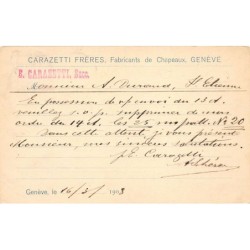 CARAZETTI FRÈRES, Fabricants de Chapeaux, GENÈVE
E. CARAZETTI, Succ.
Monsieur A. Durand, St Etienne
En possession de v/ envoi du 13 ct.
veuillez s.v.p. supprimer de mon
ordre du 14 ct. les 25 No 20
Dans cette attente, je vous présente
Monsieur, mes sincères salutations.
pE. Carazetti
Genève, le 16/3/ 1903